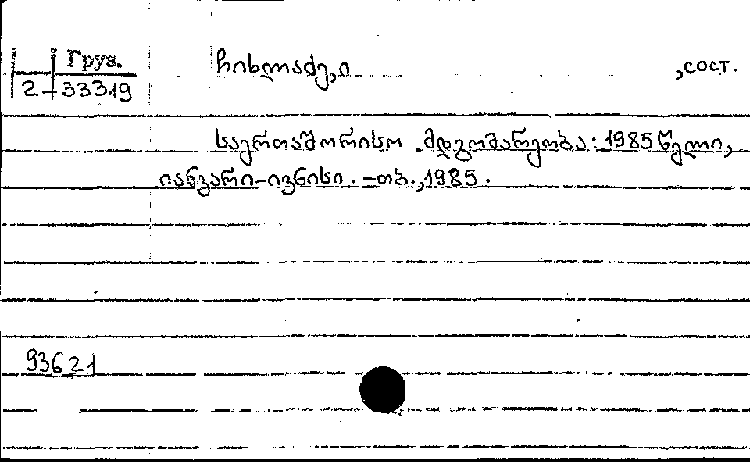 Груз.
2-33319
ჩიხლაძე, ი ,сост.
საერთაშორისო მდგომარეობა: 1985 წელი,
იანვარი-ივნისი. -თბ., 1985.
93621